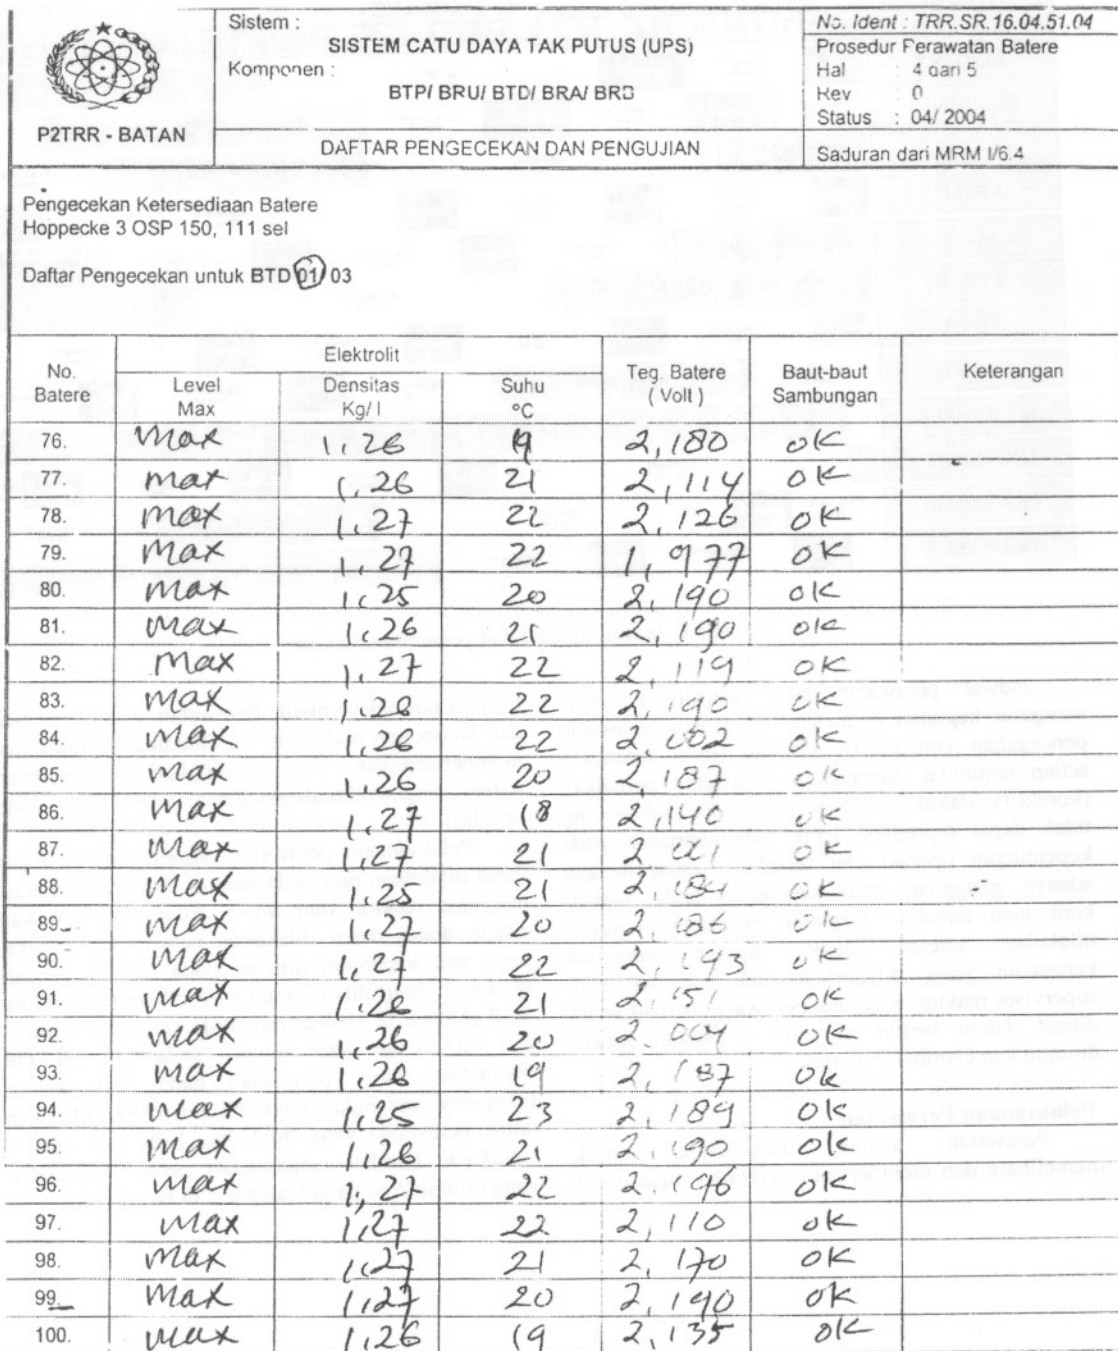 Sistem :
SISTEM CATU DAYA TAK PUTUS (UPS)
Komponen :
BTP/ BRU/ BTD/ BRA/ BRB
DAFTAR PENGECEKAN DAN PENGUJIAN
P2TRR - BATAN
No. Ident : TRR.SR.16.04.51.04
Prosedur Perawatan Batere
Hal : 4 dari 5
Rev : 0
Status : 04/ 2004
Saduran dari MRM I/6.4
Pengecekan Ketersediaan Batere
Hoppecke 3 OSP 150, 111 sel
Daftar Pengecekan untuk BTD 01/ 03
No. Batere Elektrolit Teg. Batere ( Volt ) Baut-baut Sambungan Keterangan
Level Max Densitas Kg/ l Suhu °C
76. max 1,26 19 2,180 ok
77. max 1,26 21 2,114 ok
78. max 1,27 22 2,126 ok
79. max 1,27 22 1,977 ok
80. max 1,25 20 2,190 ok
81. max 1,26 21 2,190 ok
82. max 1,27 22 2,119 ok
83. max 1,26 22 2,190 ok
84. max 1,26 22 2,002 ok
85. max 1,26 20 2,187 ok
86. max 1,27 18 2,140 ok
87. max 1,27 21 2,001 ok
88. max 1,25 21 2,184 ok
89. max 1,27 20 2,186 ok
90. max 1,27 22 2,193 ok
91. max 1,26 21 2,151 ok
92. max 1,26 20 2,004 ok
93. max 1,26 19 2,187 ok
94. max 1,25 23 2,189 ok
95. max 1,26 21 2,190 ok
96. max 1,27 22 2,196 ok
97. max 1,27 22 2,110 ok
98. max 1,27 21 2,170 ok
99. max 1,27 20 2,190 ok
100. max 1,26 19 2,135 ok